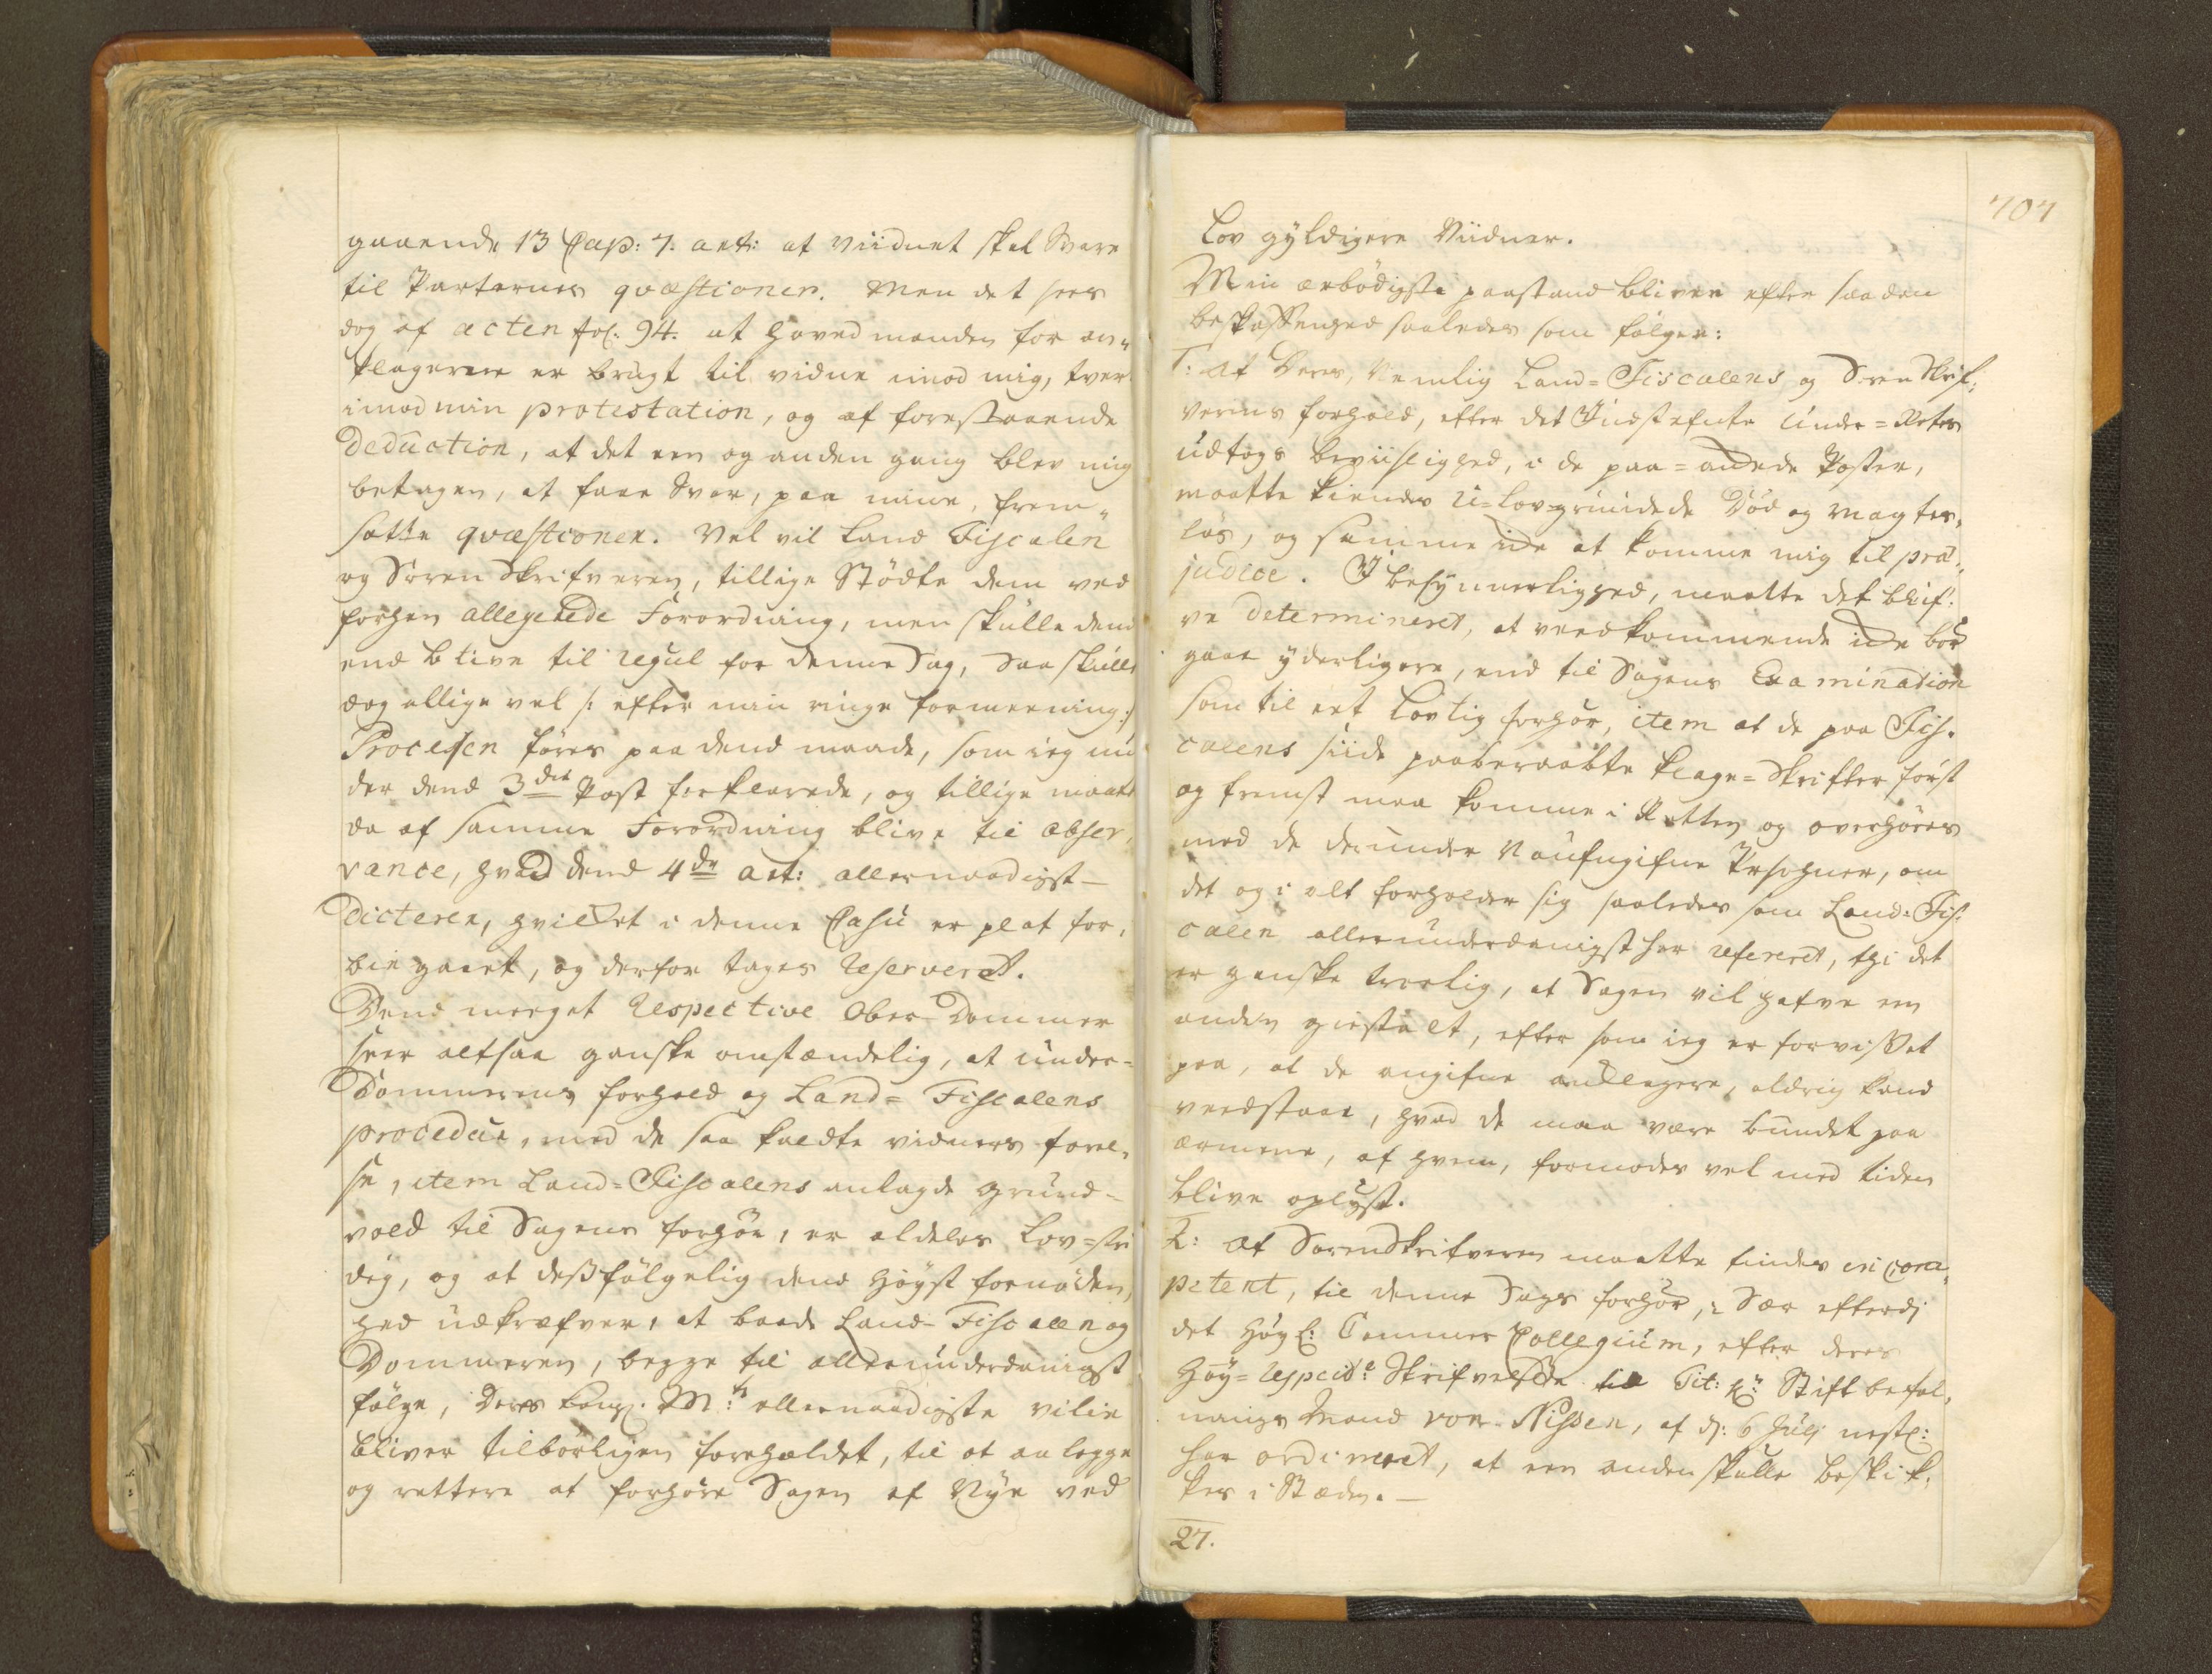 gaaende 13 Cap: 7. art: at viidnet skal Svare
til Parternes qvæstioner. Men det sees
dog af acten fol: 94. at Hovedmanden for an„
klagerne er brugt til vidne imod mig, tvert
imod min protestation, og af forestaaende
Deduction, at det een og anden gang blev mig
betagen, at faae Svar, paa mine, frem„
satte qvæstioner. Vel vil Land Fiscalen
og Sorenskrifveren, tillige Stödte dem ved
forhen allegerede Forordning, men skulle dend
end blive til regul for denne Sag, saa skulle
dog allige vel /: efter min ringe formeening :/
Processen föres paa dend maade, som ieg un
der dend 3die Post forklarede, og tillige maatte
da af samme Forordning blive til obser„
vance, hvad dend 4de art: allernaadigst
Dicterer, hvilket i denne Casu er plat for„
bie gaaet, og derfor tages reserveret.
Dend meeget respective Ober-Dommer
seer altsaa ganske omstændelig, at under-
Dommerens forhold og Land-Fiscalens
procedur, med de saa kaldte vidners förel„
se, item Land-Fiscalens anlagde grund-
vold til Sagens forhör, er aldeles Lov-stri
dig, og at desfölgelig dend höyst fornöden„
hed udkræfver, at baade Land-Fiscalen og
Dommeren, begge til allerunderdanigst
fölge, Deres Kong. Mts: allernaadigste villie
bliver tilbörligen foreholdet, til at anlegge
og rettere at forhöre Sagen af Nye ved
707
Lov gyldigere Viidner.
Min ærbödigste paastand bliver efter saadan
beskaffenhed saaledes som fölger:
1: At Deres, Nemlig Land-Fiscalens og Sorenskrif„
verens forhold, efter det Indstefnte Under-Retes
udtogs beviislighed, i de paa-ankede Poster,
maatte kiendes u-lovgrundede Död og magtes„
lös, og samme icke at komme mig til præ„
judice. I besynnerlighed, maatte det blif„
ve determineret, at veedkommende icke bör
gaae yderligere, end til Sagens Examination
som til eet Lovlig forhör, item at de paa Fis„
calens siide paaberaabte klage-Skrifter först
og fremst maa komme i Retten og overhöres
med de derunder Naufngifne Persohner, om
det og i alt forholder sig saaledes som Land-Fis„
calen allerunderdanigst har refereret, thi det
er ganske troelig, at Sagen vil hafve en
anden giestalt, efter som ieg er forvisset
paa, at de angifne anklagere, aldrig kand
veedstaae, hvad de maa være bundet paa
ærmene, af hvem, formodes vel med tiden
blive oplyst.
2: At Sorenskrifveren maatte findes in com„
petent, til denne Sags forhör, i Sær efterdj
det höyl: Cammer Collegium, efter deres
Höy-respect: Skrifvelse til Tit: hr: Stiftbefal„
nings Mand von Nissen, af d: 6 Julj nestl:
har ordineret, at een anden skulle beskik„
kes i Stæden.—
27.